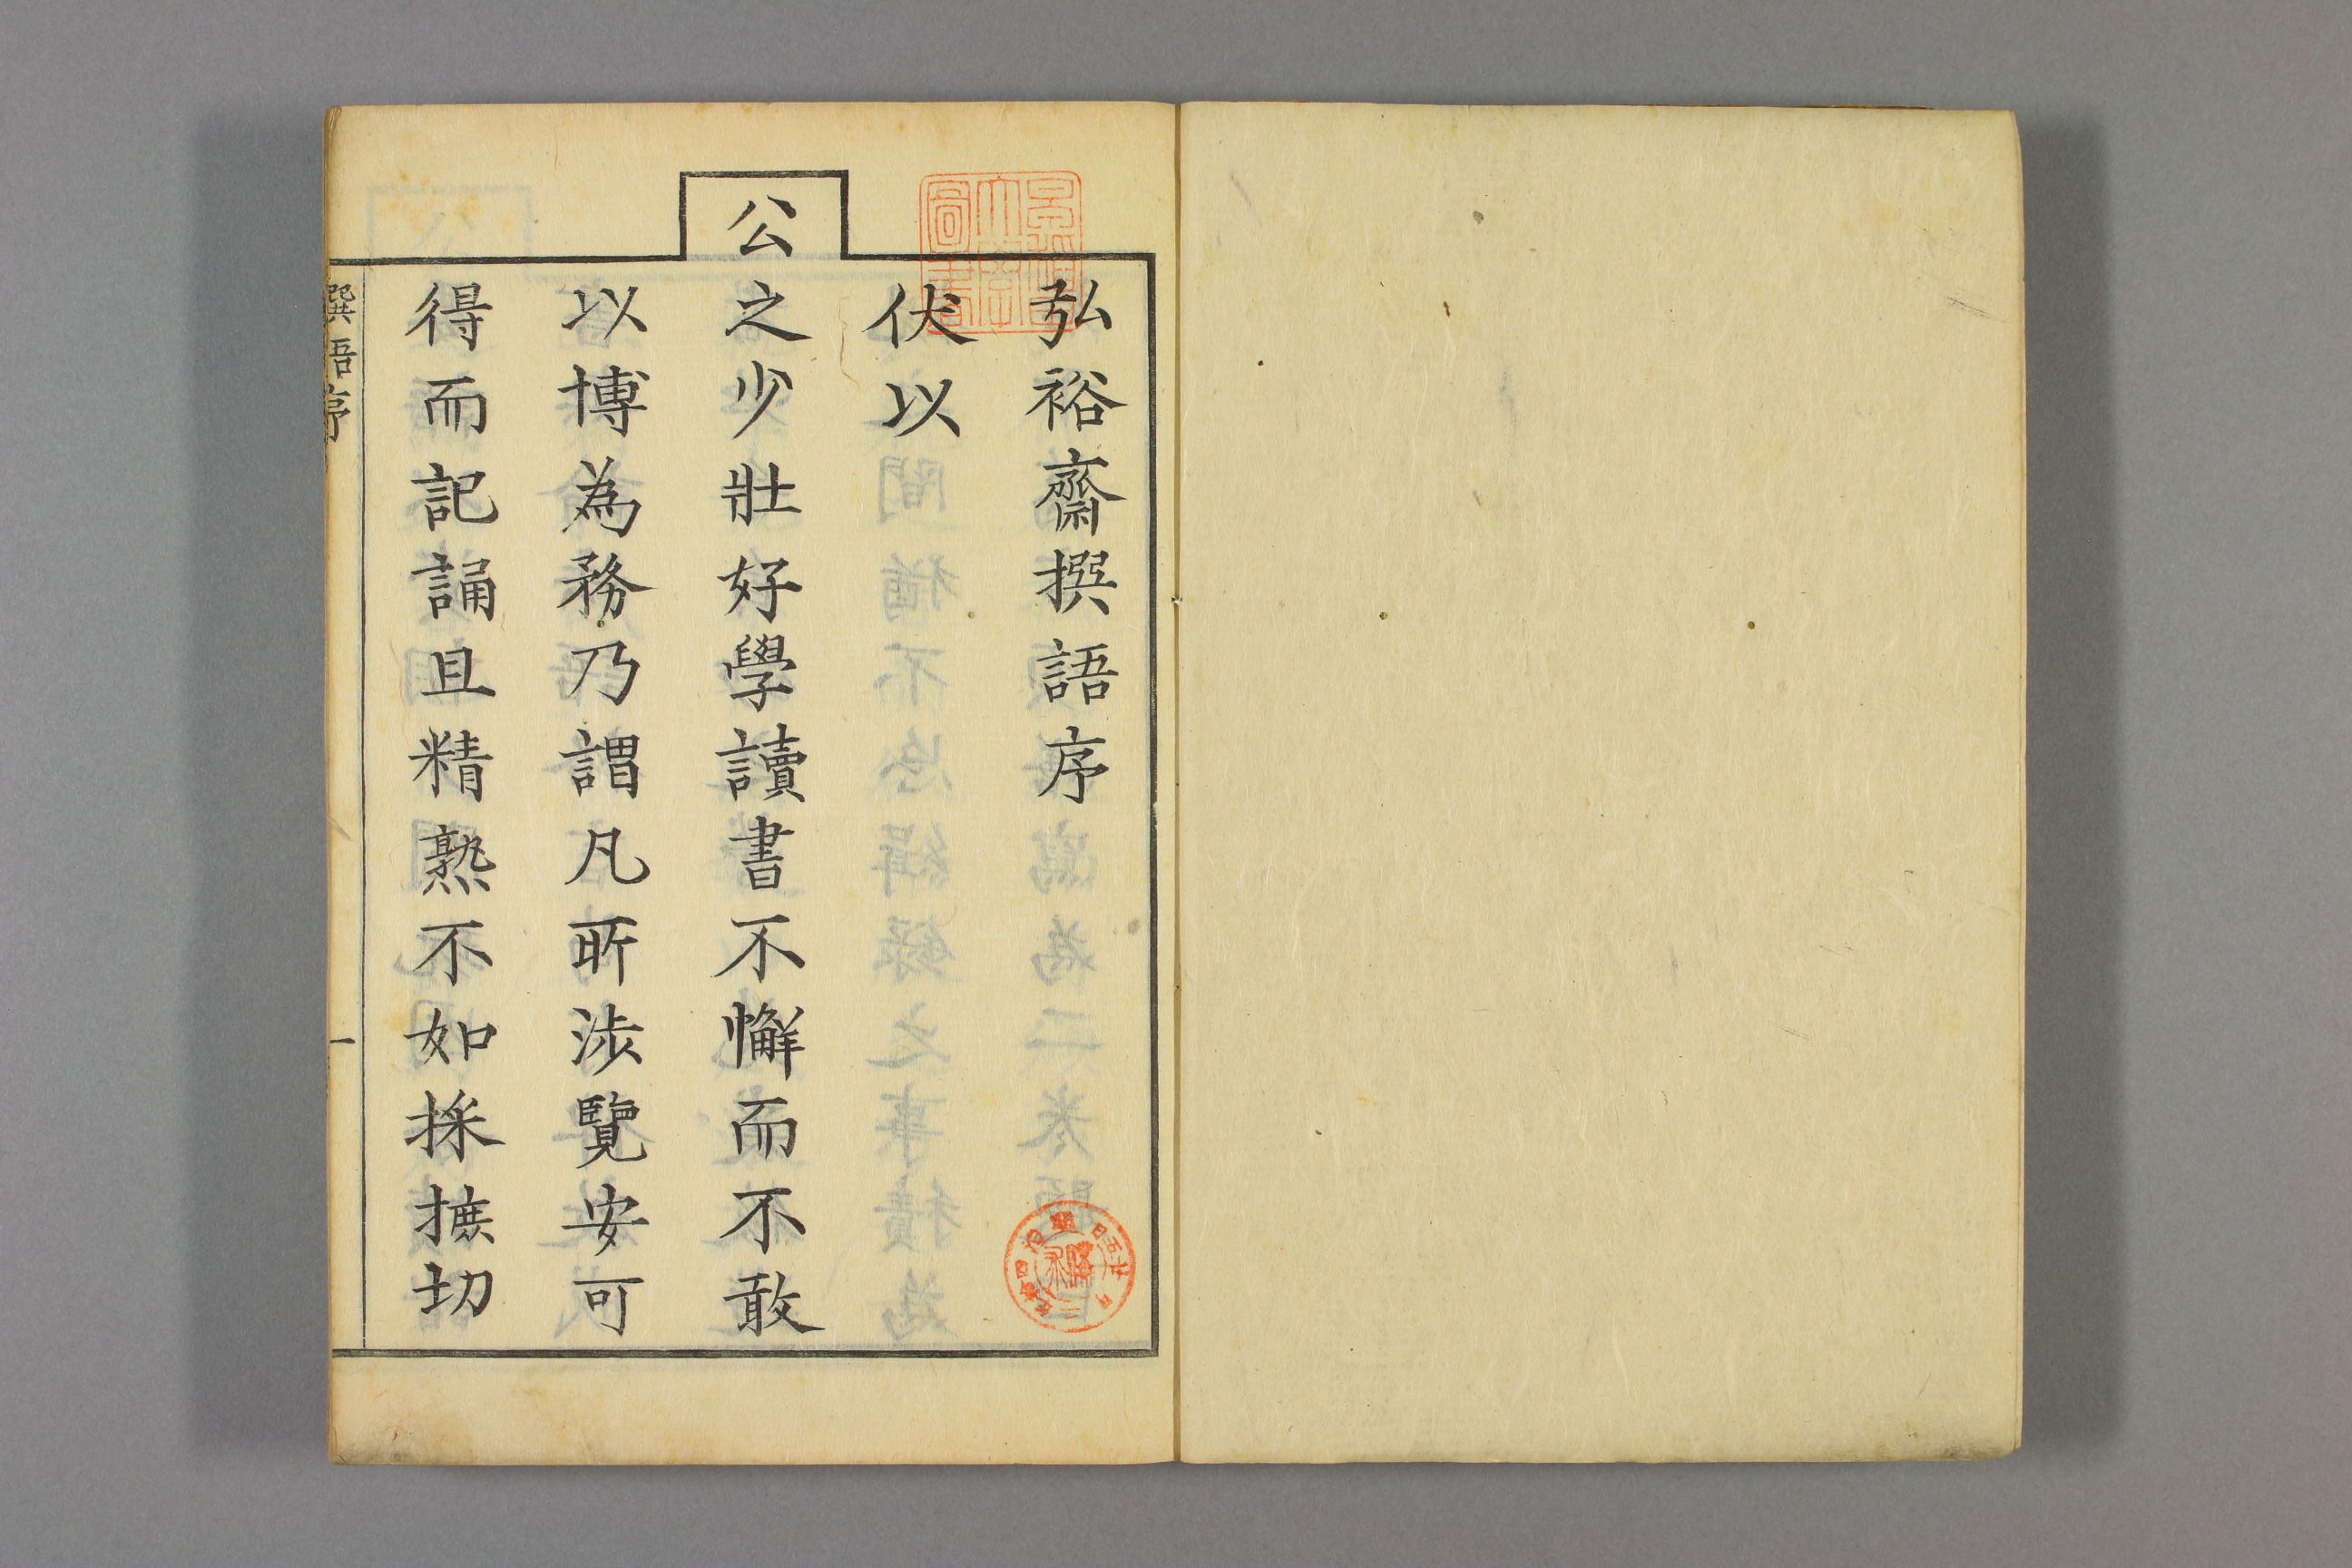 弘裕齋撰語序
伏以
公之少壯好學讀書不懈而不敢
以博為務乃謂凡所涉覽安可
得而記誦且精熟不如採摭切
撰語序
一